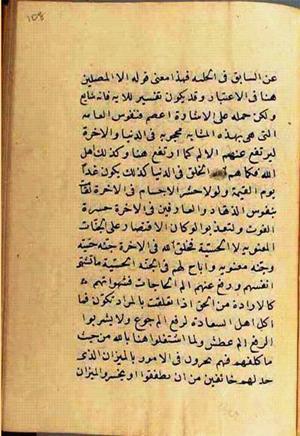 ١٥٤
عن السابق في الحلبة فهذا معنى قوله الا المصلين
هنا في الاعتبار وقد يكون تفسير للاية فانه شايع
ولكن حمله على الاشارة اعصم فنفوس العامة
التي هي بهذه المثابة محجوبة في الدنيا والاخرة
ليرتفع عنهم الالم كما ارتفع هنا وكذلك اهل
الله فكما هم الخلق في الدنيا كذلك يكون غدا
يوم القيمة ولولا حشر الاجسام في الاخرة لقامت
بنفوس الزهاد والعارفين في الاخرة حسرة
الفوت ولتعذبوا لو كان الاقتصار على الجنات
المعنوية لا الحسية فخلق الله في الاخرة جنة حسية
وجنة معنوية واباح لهم في الجنة الحسية ما تشتهي
انفسهم ورفع عنهم الم الحاجات فشهواتهم
كالارادة من الحق اذا تعلقت بالمراد تكون فما
اكل اهل السعادة لرفع الم جوع ولا يشربوا
لرفع الم عطش ولما اشتغلوا هنا بالله من حيث
ما كلفهم فهم يجرون في الامور بالميزان الذي
حد لهم خائفين من ان يطففوا او يخسروا الميزان